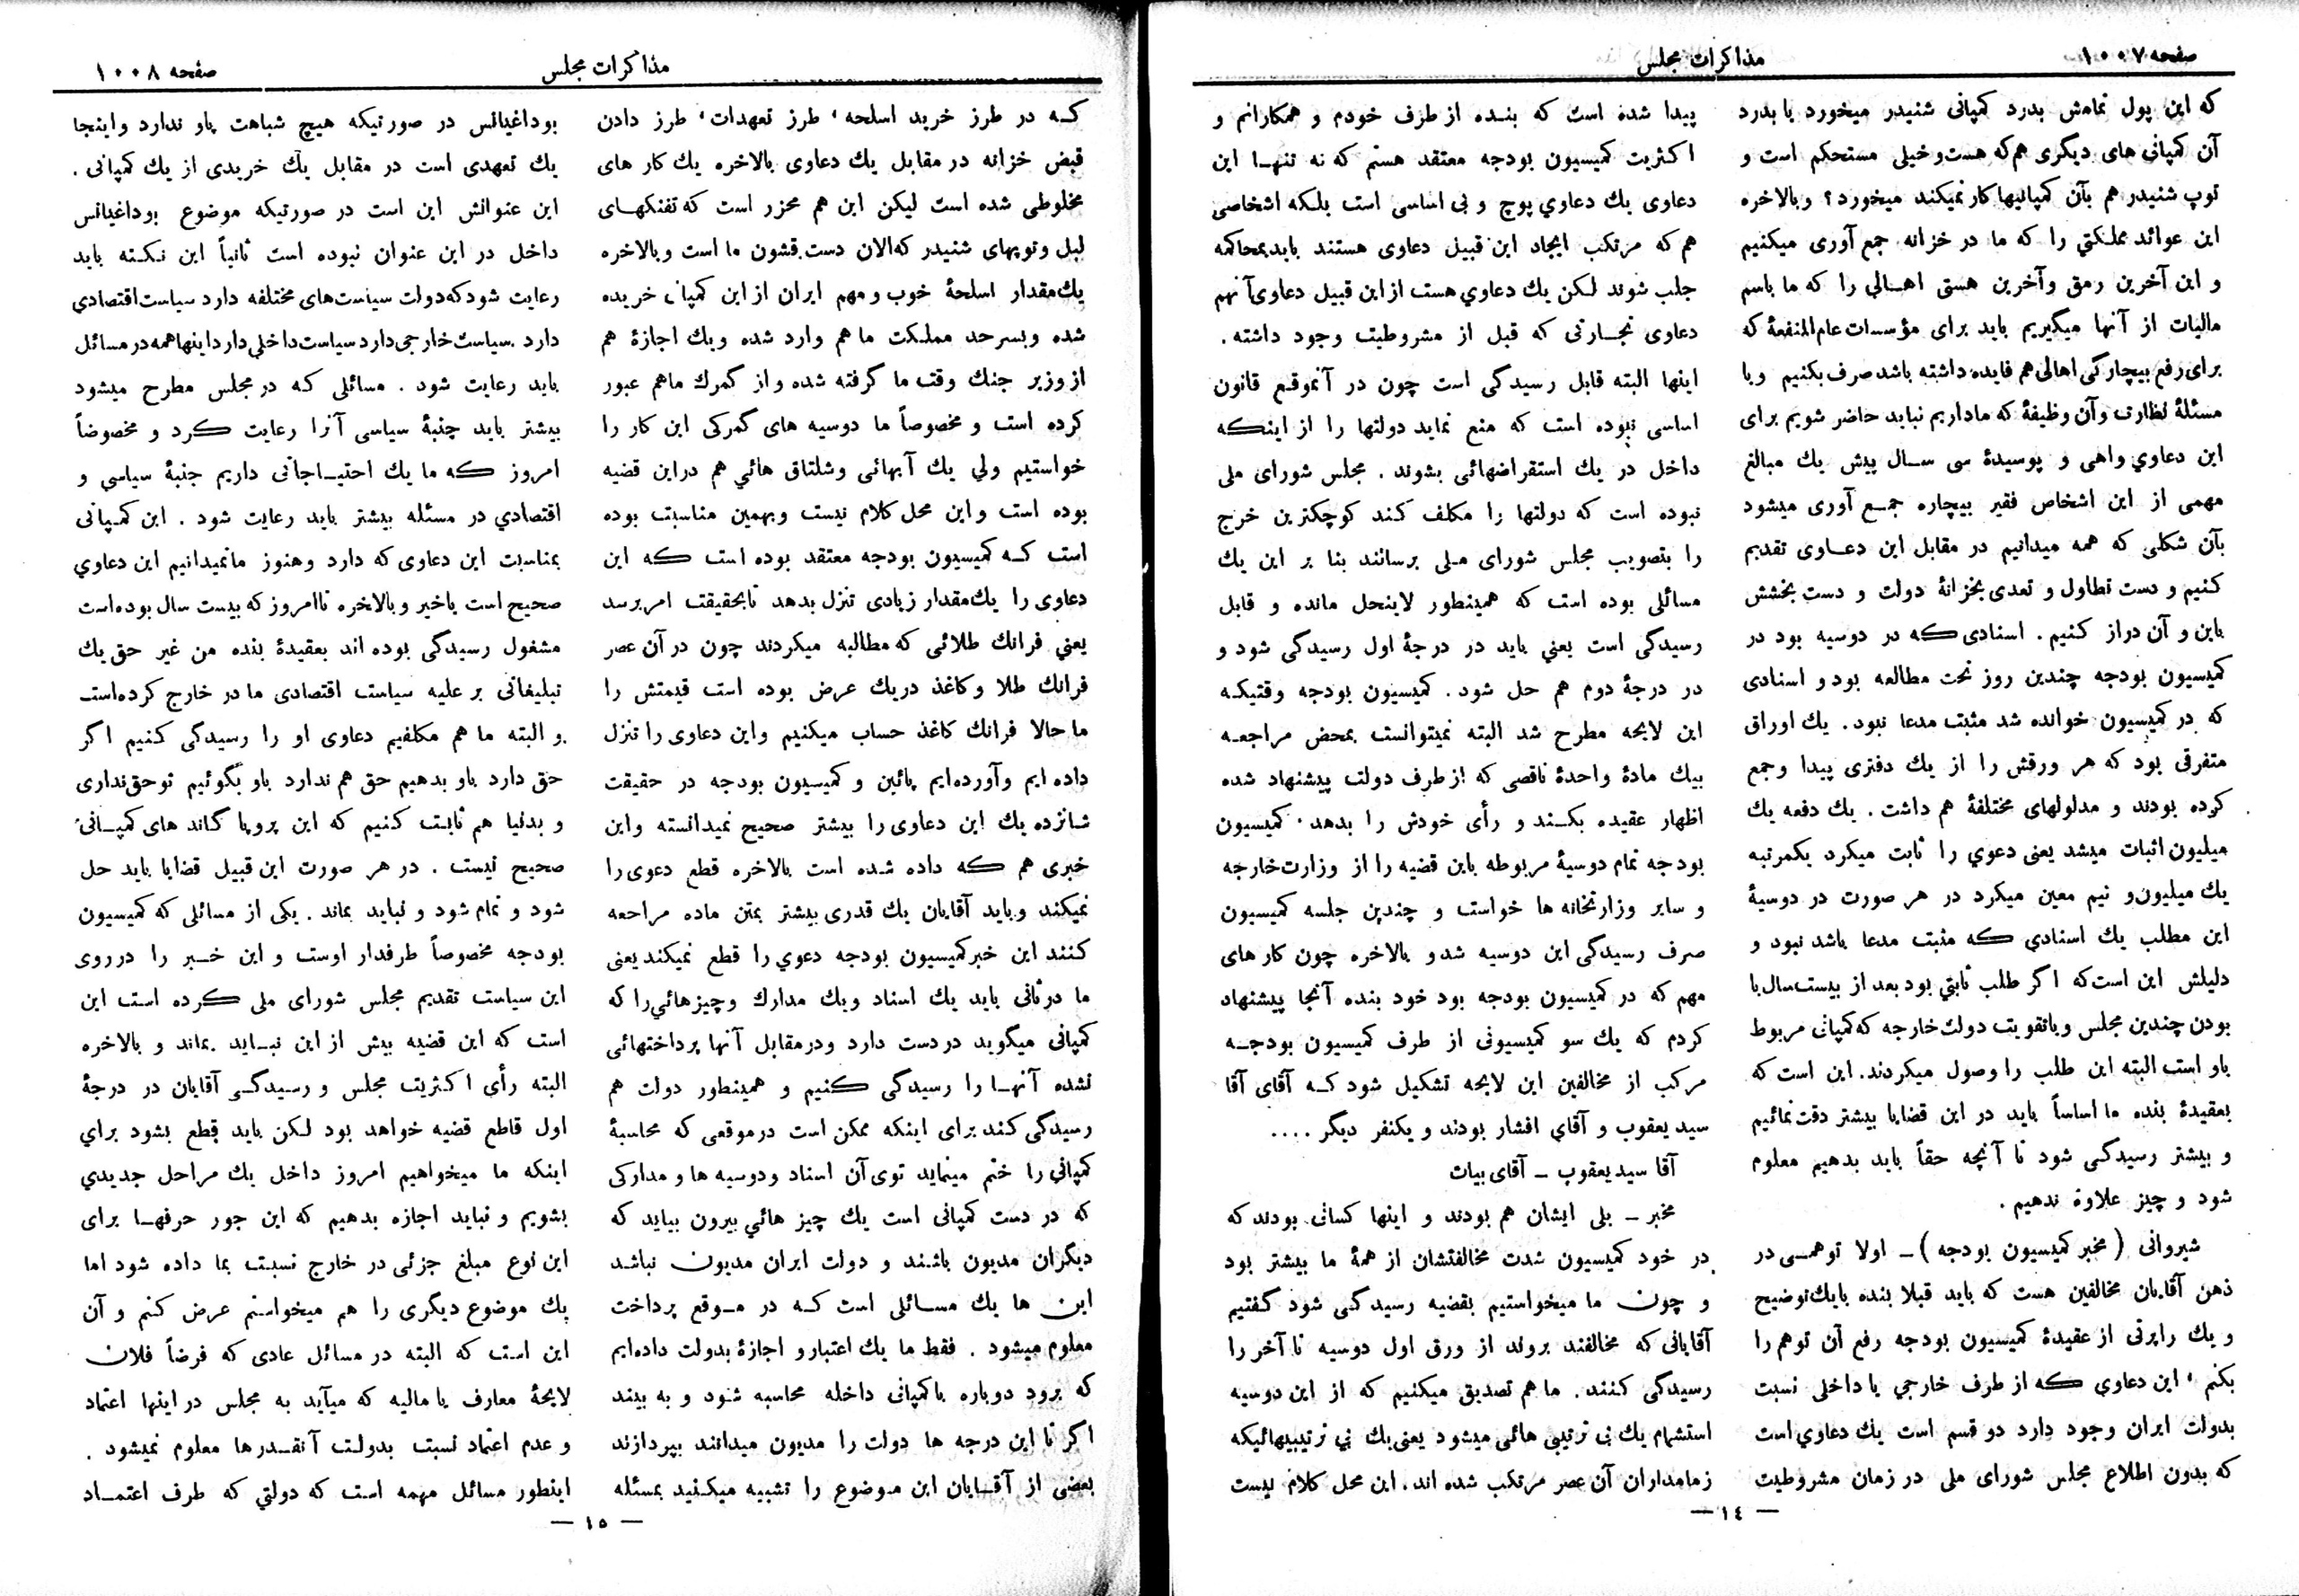 صفحه ۱۰۰۷
مذاکرات مجلس
که این پول تمامش بدرد کمپانی شنیدر میخورد یا بدرد
آن کمپانی های دیگری هم که هست و خیلی مستحکم است و
توپ شنیدر هم بآن کمپانیها کار نمیکند میخورد؟ و بالاخره
این عوائد مملکتي را که ما در خزانه جمع آوری میکنیم
و این آخرین رمق و آخرین هستی اهالي را که ما باسم
مالیات از آنها میگیریم باید برای مؤسسات عام‌المنفعهٔ که
برای رفع بیچارگی اهالی هم فایده داشته باشد صرف بکنیم و با
مسئلهٔ نظارت و آن وظیفهٔ که ما داریم نباید حاضر شویم برای
این دعاوي واهی و پوسیدهٔ سی سال پیش یك مبالغ
مهمی از این اشخاص فقیر بیچاره جمع آوری میشود
بآن شکلی که همه میدانیم در مقابل این دعاوی تقدیم
کنیم و دست تطاول و تعدی بخزانهٔ دولت و دست بخشش
باین و آن دراز کنیم . اسنادی که در دوسیه بود در
کمیسیون بودجه چندین روز تحت مطالعه بود و اسنادی
که در کمیسیون خوانده شد مثبت مدعا نبود . یك اوراق
متفرقی بود که هر ورقش را از یك دفتری پیدا و جمع
کرده بودند و مدلولهای مختلفهٔ هم داشت . یك دفعه یك
میلیون اثبات میشد یعنی دعوي را ثابت میکرد یکمرتبه
یك میلیون و نیم معین میکرد در هر صورت در دوسیهٔ
این مطلب یك اسنادي که مثبت مدعا باشد نبود و
دلیلش این است که اگر طلب ثابتي بود بعد از بیست سال با
بودن چندین مجلس و با تقویت دولت خارجه که کمپانی مربوط
باو است البته این طلب را وصول میکردند . این است که
بعقیدهٔ بنده ما اساساً باید در این قضایا بیشتر دقت نمائیم
و بیشتر رسیدگی شود تا آنچه حقاً باید بدهیم معلوم
شود و چیز علاوه ندهیم .
شیروانی ( مخبر کمیسیون بودجه ) ـ اولا توهمی در
ذهن آقایان مخالفین هست که باید قبلا بنده با یك توضیح
و یك راپرتی از عقیدهٔ کمیسیون بودجه رفع آن توهم را
بکنم ، این دعاوي که از طرف خارجي یا داخلی نسبت
بدولت ایران وجود دارد دو قسم است یك دعاوي است
که بدون اطلاع مجلس شورای ملی در زمان مشروطیت
پیدا شده است که بنده از طرف خودم و همکارانم و
اکثریت کمیسیون بودجه معتقد هستم که نه تنها این
دعاوی یك دعاوي پوچ و بی اساسی است بلکه اشخاصی
هم که مرتکب ایجاد این قبیل دعاوی هستند باید بمحاکمه
جلب شوند لکن یك دعاوي هست از این قبیل دعاوی آنهم
دعاوی تجارتی که قبل از مشروطیت وجود داشته .
اینها البته قابل رسیدگی است چون در آنموقع قانون
اساسی نبوده است که منع نماید دولتها را از اینکه
داخل در یك استقراضهائی بشوند . مجلس شورای ملی
نبوده است که دولتها را مکلف کند کوچکترین خرج
را بتصویب مجلس شورای ملی برسانند بنا بر این یك
مسائلی بوده است که همینطور لاینحل مانده و قابل
رسیدگی است یعني باید در درجهٔ اول رسیدگی شود و
در درجهٔ دوم هم حل شود . کمیسیون بودجه وقتیکه
این لایحه مطرح شد البته نمیتوانست بمحض مراجعه
بیك مادهٔ واحدهٔ ناقصی که از طرف دولت پیشنهاد شده
اظهار عقیده بکند و رأی خودش را بدهد . کمیسیون
بودجه تمام دوسیهٔ مربوطه باین قضیه را از وزارت خارجه
و سایر وزارتخانه ها خواست و چندین جلسه کمیسیون
صرف رسیدگی این دوسیه شد و بالاخره چون کار های
مهم که در کمیسیون بودجه بود خود بنده آنجا پیشنهاد
کردم که یك سو کمیسیونی از طرف کمیسیون بودجه
مرکب از مخالفین این لایحه تشکیل شود که آقای آقا
سید یعقوب و آقاي افشار بودند و یکنفر دیگر ....
آقا سید یعقوب ـ آقای بیات
مخبر ـ بلی ایشان هم بودند و اینها کسانی بودند که
در خود کمیسیون شدت مخالفتشان از همهٔ ما بیشتر بود
و چون ما میخواستیم بقضیه رسیدگی شود گفتیم
آقایانی که مخالفند بروند از ورق اول دوسیه تا آخر را
رسیدگی کنند . ما هم تصدیق میکنیم که از این دوسیه
استشمام یك بی ترتیبی هائی میشود یعنی یك بي ترتیبیهائیکه
زمامداران آن عصر مرتکب شده اند . این محل کلام نیست
ـ ١٤ ـ
صفحه ۱۰۰۸
مذاکرات مجلس
که در طرز خرید اسلحه ، طرز تعهدات ، طرز دادن
قبض خزانه در مقابل یك دعاوی بالاخره یك کار های
مخلوطی شده است لیکن این هم محرز است که تفنگهای
لبل و توپهای شنیدر که الان دست قشون ما است و بالاخره
یك مقدار اسلحهٔ خوب و مهم ایران از این کمپانی خریده
شده و بسرحد مملکت ما هم وارد شده و یك اجازهٔ هم
از وزیر جنك وقت ما گرفته شده و از گمرك ما هم عبور
کرده است و مخصوصاً ما دوسیه های گمرکی این کار را
خواستیم ولي یك آبهائی و شلتاق هائي هم در این قضیه
بوده است و این محل کلام نیست و بهمین مناسبت بوده
است که کمیسیون بودجه معتقد بوده است که این
دعاوی را یك مقدار زیادی تنزل بدهد تا بحقیقت امر برسد
یعني فرانك طلائی که مطالبه میکردند چون در آن عصر
فرانك طلا و کاغذ در یك عرض بوده است قیمتش را
ما حالا فرانك کاغذ حساب میکنیم و این دعاوی را تنزل
داده ایم و آورده ایم پائین و کمیسیون بودجه در حقیقت
شانزده یك این دعاوی را بیشتر صحیح نمیدانسته و این
خبری هم که داده شده است بالاخره قطع دعوی را
نمیکند و باید آقایان یك قدری بیشتر بمتن ماده مراجعه
کنند این خبر کمیسیون بودجه دعوي را قطع نمیکند یعنی
ما در ثانی باید یك اسناد و یك مدارك و چیز هائي را که
کمپانی میگوید در دست دارد و در مقابل آنها پرداختهائی
نشده آنها را رسیدگی کنیم و همینطور دولت هم
رسیدگی کند برای اینکه ممکن است در موقعی که محاسبهٔ
کمپانی را ختم مینماید توی آن اسناد و دوسیه ها و مدارکی
که در دست کمپانی است یك چیز هائي بیرون بیاید که
دیگران مدیون باشند و دولت ایران مدیون نباشد
این ها یك مسائلی است که در موقع پرداخت
معلوم میشود . فقط ما یك اعتبار و اجازهٔ بدولت داده ایم
که برود دوباره با کمپانی داخله محاسبه شود و به بیند
اگر تا این درجه ها دولت را مدیون میدانند بپردازند
بعضی از آقایان این موضوع را تشبیه میکنید بمسئله
بوداغیانس در صورتیکه هیچ شباهت باو ندارد و اینجا
یك تعهدی است در مقابل یك خریدی از یك کمپانی .
این عنوانش این است در صورتیکه موضوع بوداغیانس
داخل در این عنوان نبوده است ثانیاً این نکته باید
رعایت شود که دولت سیاست های مختلفه دارد سیاست اقتصادي
دارد . سیاست خارجی دارد سیاست داخلي دارد اینها همه در مسائل
باید رعایت شود . مسائلی که در مجلس مطرح میشود
بیشتر باید جنبهٔ سیاسی آنرا رعایت کرد و مخصوصاً
امروز که ما یك احتیاجاتی داریم جنبهٔ سیاسي و
اقتصادي در مسئله بیشتر باید رعایت شود . این کمپانی
بمناسبت این دعاوی که دارد و هنوز ما نمیدانیم این دعاوي
صحیح است یا خیر و بالاخره تا امروز که بیست سال بوده است
مشغول رسیدگی بوده اند بعقیدهٔ بنده من غیر حق یك
تبلیغاتی بر علیه سیاست اقتصادی ما در خارج کرده است
و البته ما هم مکلفیم دعاوی او را رسیدگی کنیم اگر
حق دارد باو بدهیم حق هم ندارد باو بگوئیم تو حق نداری
و بدنیا هم ثابت کنیم که این پروپاگاند های کمپانی
صحیح نیست . در هر صورت این قبیل قضایا باید حل
شود و تمام شود و نباید بماند . یکی از مسائلی که کمیسیون
بودجه مخصوصاً طرفدار اوست و این خبر را در روی
این سیاست تقدیم مجلس شورای ملی کرده است این
است که این قضیه بیش از این نباید بماند و بالاخره
البته رأی اکثریت مجلس و رسیدگی آقایان در درجهٔ
اول قاطع قضیه خواهد بود لکن باید قطع بشود براي
اینکه ما میخواهیم امروز داخل یك مراحل جدیدي
بشویم و نباید اجازه بدهیم که این جور حرفها برای
این نوع مبلغ جزئی در خارج نسبت بما داده شود اما
یك موضوع دیگری را هم میخواستم عرض کنم و آن
این است که البته در مسائل عادی که فرضاً فلان
لایحهٔ معارف یا مالیه که میآید به مجلس در اینها اعتماد
و عدم اعتماد نسبت بدولت آنقدرها معلوم نمیشود .
اینطور مسائل مهمه است که دولتي که طرف اعتماد
ـ ١٥ ـ